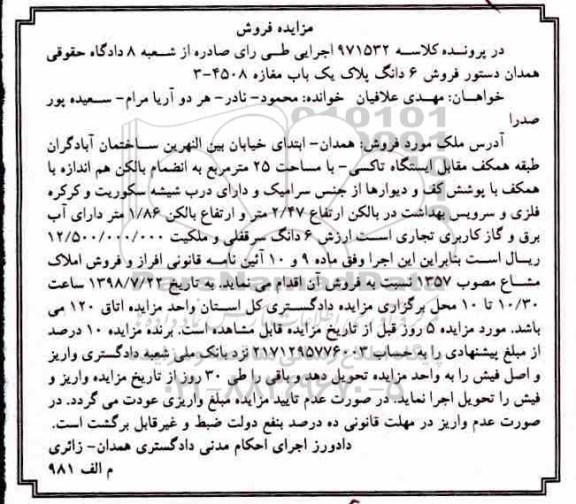 مزایده فروش
در پرونده کلاسه ۹۷۱۵۳۲ اجرایی طی رای صادره از شعبه ۸ دادگاه حقوقی
همدان دستور فروش ۶ دانگ پلاک یک باب مغازه ۴۵۰۸-۳
خواهان: مهدی علافیان خوانده: محمود- نادر- هر دو آریا مرام- سعیده پور
صدرا
آدرس ملک مورد فروش: همدان- ابتدای خیابان بین النهرین ساختمان آبادگران
طبقه همکف مقابل ایستگاه تاکسی- با مساحت ۲۵ مترمربع به انضمام بالکن هم اندازه با
همکف با پوشش کف و دیوارها از جنس سرامیک و دارای درب شیشه سکوریت و کرکره
فلزی و سرویس بهداشت در بالکن ارتفاع ۲/۴۷ متر و ارتفاع بالکن ۱/۸۶ متر دارای آب
برق و گاز کاربری تجاری است ارزش ۶ دانگ سرقفلی و ملکیت ۱۲/۵۰۰/۰۰۰/۰۰۰
ریال است بنابراین این اجرا وفق ماده ۹ و ۱۰ آئین نامه قانونی افراز و فروش املاک
مشاع مصوب ۱۳۵۷ نسبت به فروش آن اقدام می نماید. به تاریخ ۱۳۹۸/۷/۲۲ ساعت
۱۰/۳۰ تا ۱۰ محل برگزاری مزایده دادگستری کل استان واحد مزایده اتاق ۱۲۰ می
باشد. مورد مزایده ۵ روز قبل از تاریخ مزایده قابل مشاهده است. برنده مزایده ۱۰ درصد
از مبلغ پیشنهادی را به حساب ۲۱۷۱۲۹۵۷۷۶۰۰۳ نزد بانک ملی شعبه دادگستری واریز
و اصل فیش را به واحد مزایده تحویل دهد و باقی را طی ۳۰ روز از تاریخ مزایده واریز و
فیش را تحویل اجرا نماید. در صورت عدم تایید مزایده مبلغ واریزی عودت می گردد. در
صورت عدم واریز در مهلت قانونی ده درصد بنفع دولت ضبط و غیرقابل برگشت است.
دادورز اجرای احکام مدنی دادگستری همدان- زائری
م الف ۹۸۱